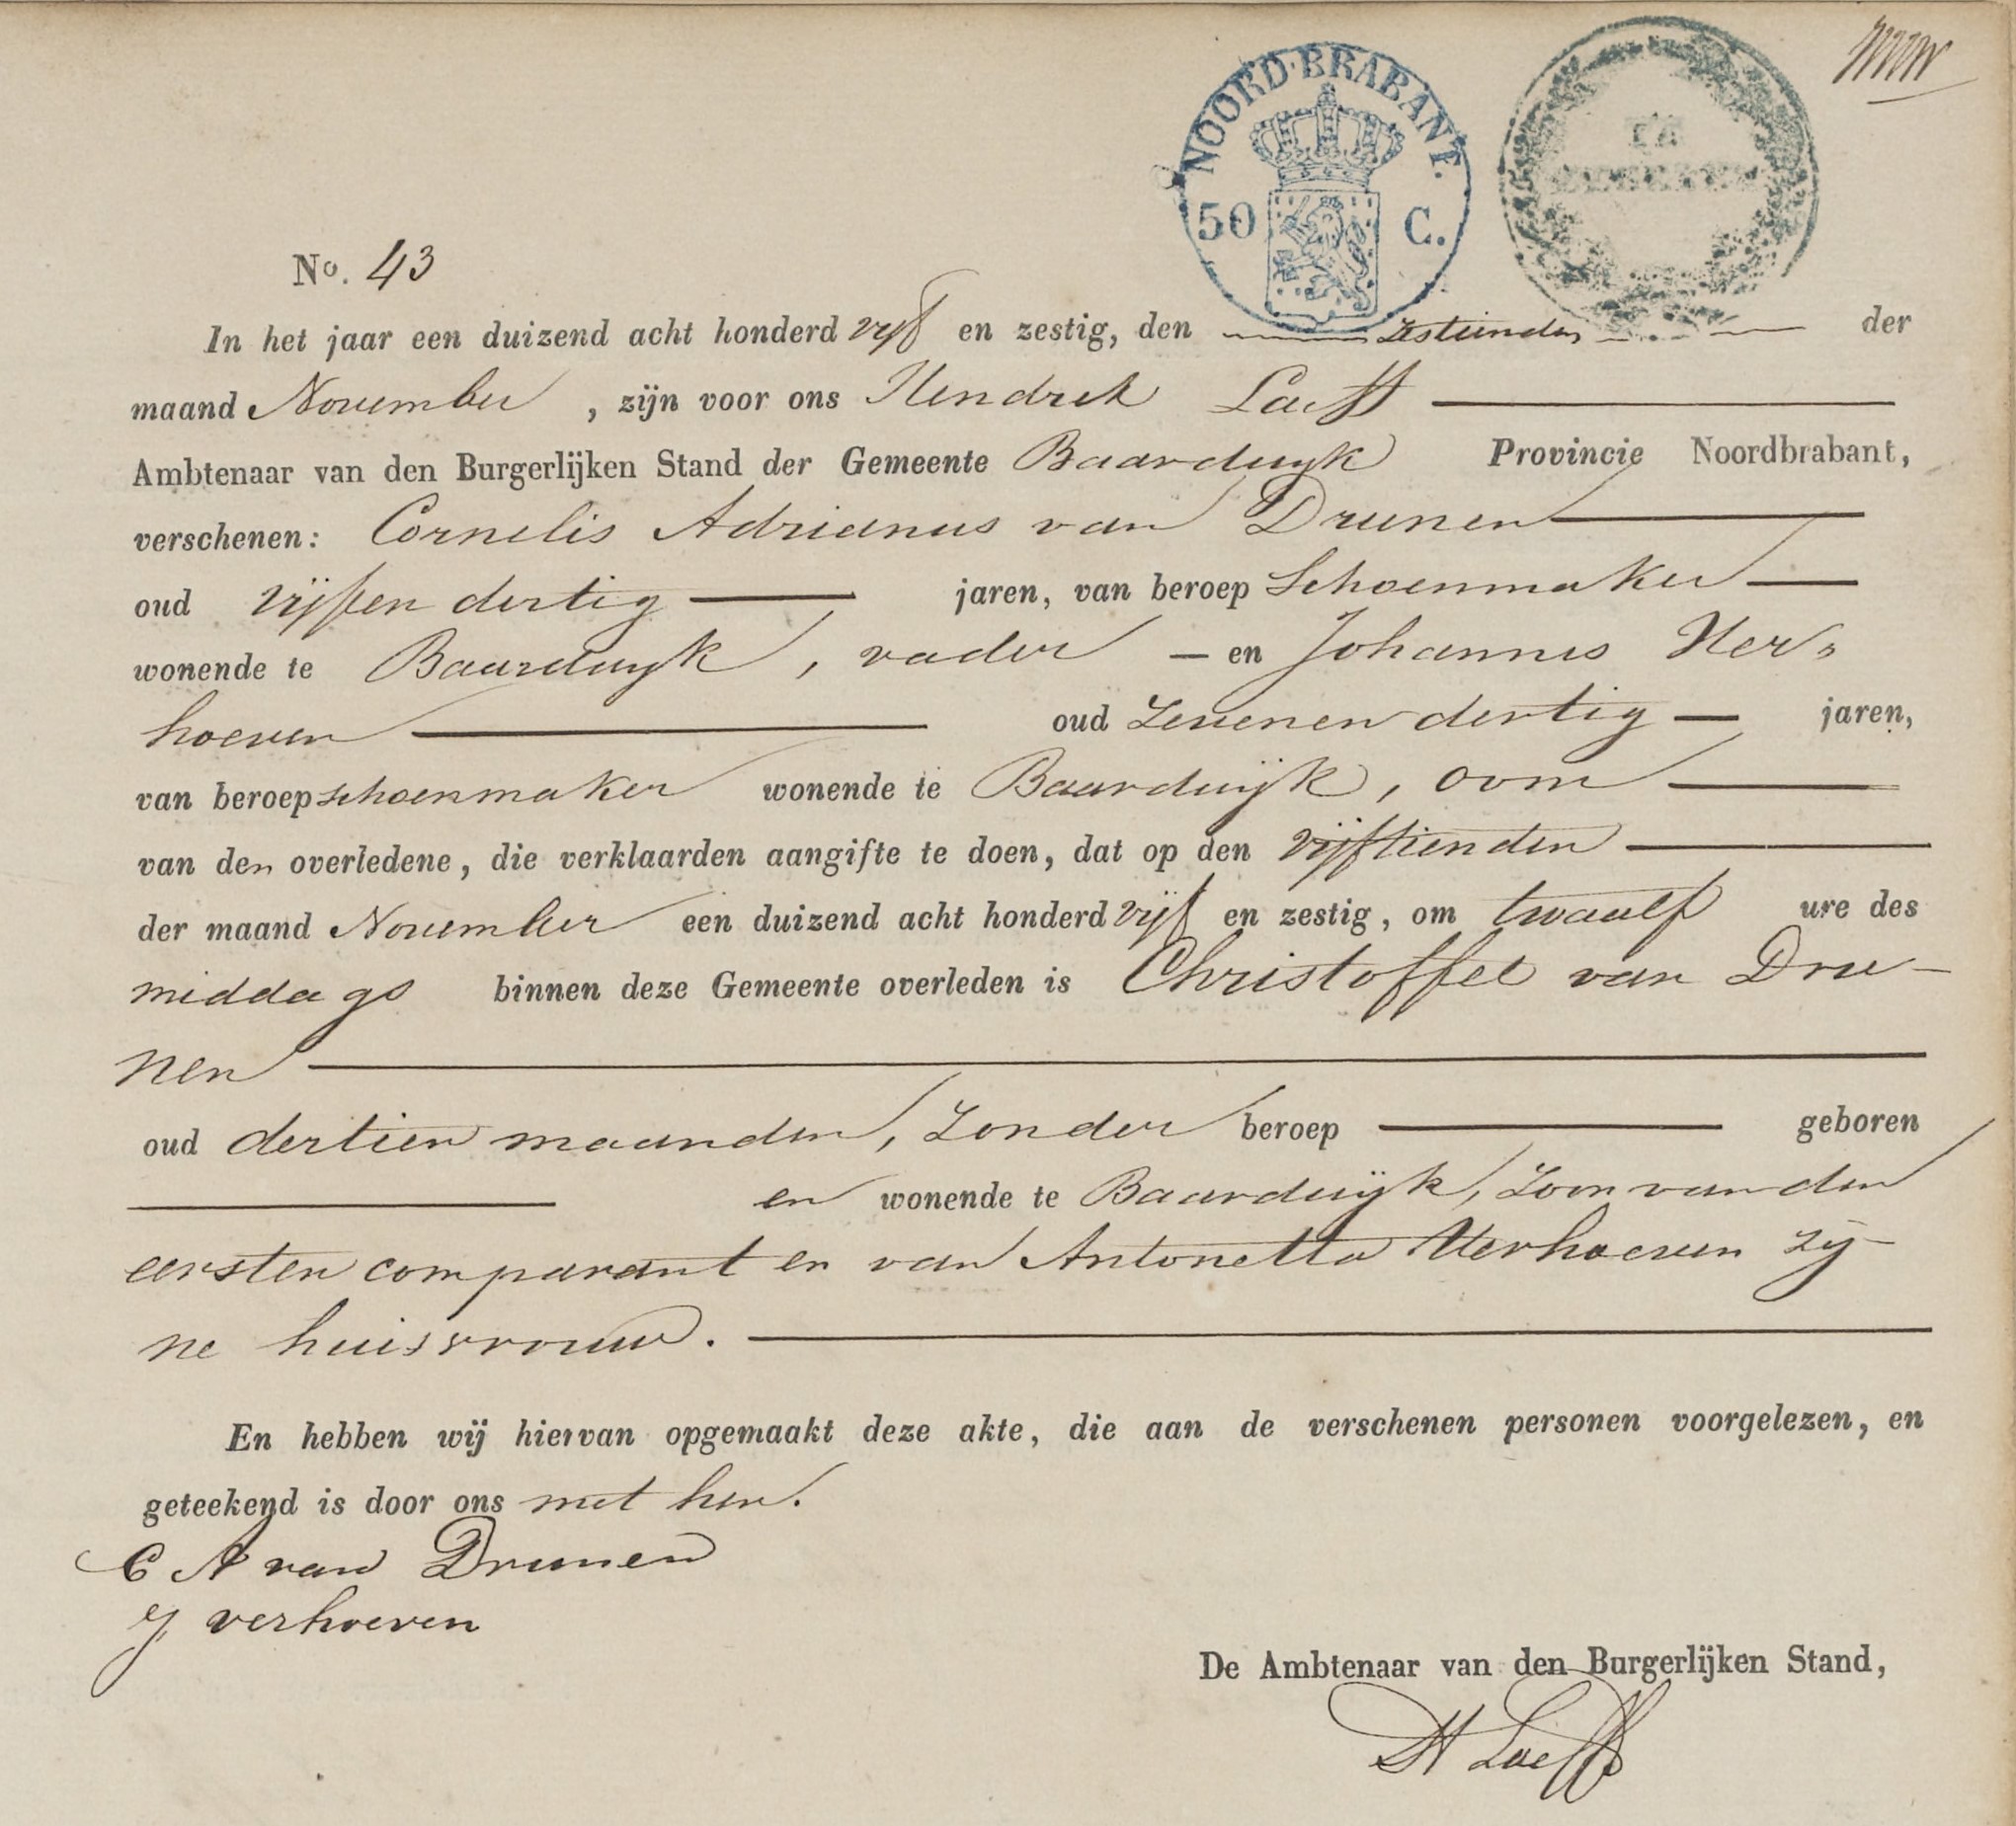 NOORD-BRABANT.
50 C.
No. 43
In het jaar een duizend acht honderd vijf en zestig, den zestienden der
maand November, zijn voor ons Hendrik Loeff
Ambtenaar van den Burgerlijken Stand der Gemeente Baardwyk Provincie Noordbrabant,
verschenen: Cornelis Adrianus van Drunen
oud vijfen dertig jaren, van beroep Schoenmaker
wonende te Baardwyk, vader — en Johannes Ver„
hoeven oud Zevenen dertig — jaren,
van beroep schoenmaker wonende te Baardwijk, oom
van den overledene, die verklaarden aangifte te doen, dat op den vijftienden
der maand November een duizend acht honderd vijf en zestig, om twaalf ure des
middags binnen deze Gemeente overleden is Christoffel van Dru-
nen
oud dertien maanden, Zonder beroep geboren
en wonende te Baardwijk, Zoon van den
eersten comparant en van Antonetta Verhoeven zij-
ne huisvrouw.
En hebben wij hiervan opgemaakt deze akte, die aan de verschenen personen voorgelezen, en
geteekend is door ons met hen.
C A van Drunen
J verhoeven
De Ambtenaar van den Burgerlijken Stand,
H Loeff